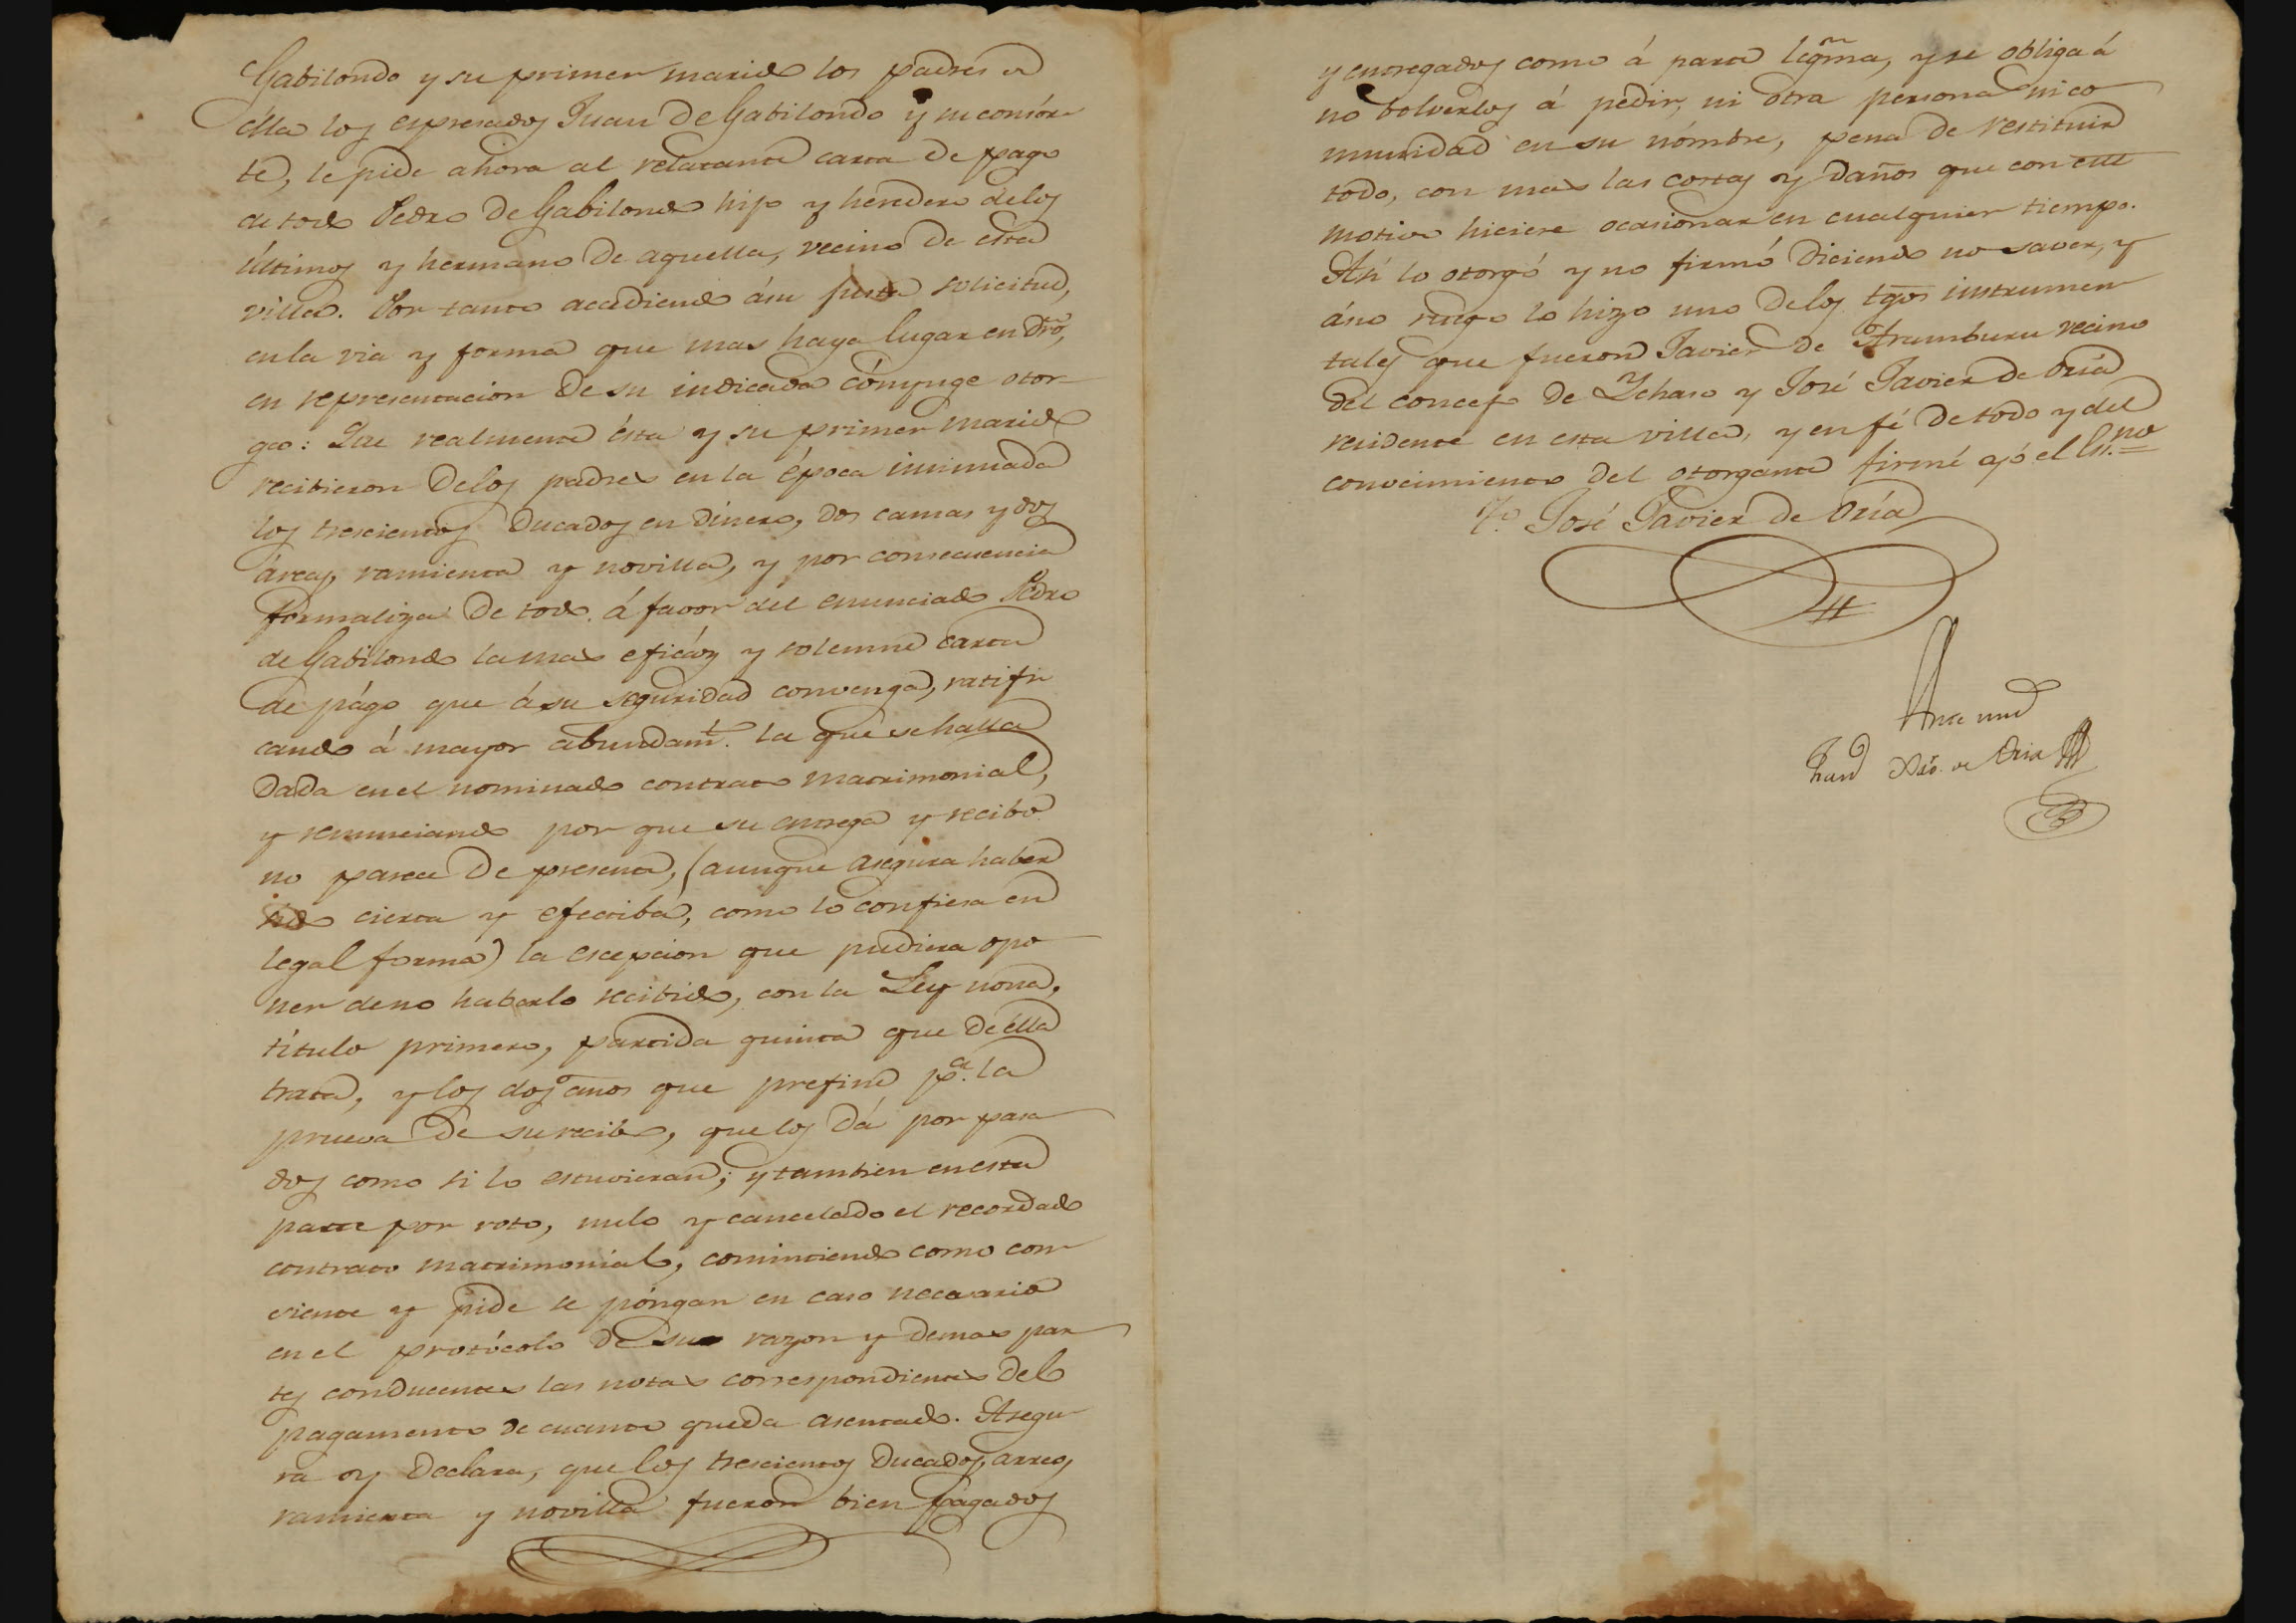 Gabilondo y su primer marido los padres de
élla los espresados Juan de Gabilondo y su consór-
te, le pide ahora al relatante carta de pago
de todo Pedro de Gabilondo hijo y heredero de los
últimos y hermano de aquella, vecino de esta
villa. Por tanto accediendo á su justa solicitud,
en la via y forma que mas haya lugar en dr̃o,
en representacion de su indicada cónyuge otor-
ga: Que realmente ésta y su primer marido
recibieron de los padres en la época insinuada
los trescientos ducados en dinero, dos camas y dos
árcas, ramienta y novilla, y por consecuencia
formaliza de todo á favor del enunciado Pedro
de Gabilondo la mas eficáz y solemne carta
de págo que á su seguridad convenga, ratifi-
cando á mayor abundamt. la que se halla
dada en el nominado contrato matrimonial,
y renunciando por que su entrega y recibo
no parece de presente, (aunque asegura haber
sido cierta y efectiba, como lo confiesa en
legal forma) la escepcion que pudiera opo-
ner de no haberlo recibido, con la Ley nona,
título primero, partida quinta que de élla
trata, y los dos años que prefine pa. la
prueva de su recibo, que los dá por pasa-
dos como si lo estuvieran; y tambien en esta
parte por roto, nulo y cancelado el recordado
contrato matrimonial, consintiendo como con-
siente y pide se póngan en caso necesario
en el protócolo de su razon y demas par-
tes conducentes las notas correspondientes del
pagamento de cuanto queda asentado. Asegu-
ra y declara, que los trescientos ducados, arreo,
ramienta y novilla fueron bien pagados
y entregados como á parte legm̃a, y se obliga á
no bolverlos á pedir, ni otra persona ni co-
munidad en su nómbre, pena de restituir
todo, con mas las costas y daños que con este
motivo hiciere ocasionar en cualquier tiempo.
Asi lo otorgó y no firmó diciendo no saver, y
á su ruego lo hizo uno de los tg̃os instrumen-
tales que fueron Javier de Aramburu vecino
del concejo de Ychaso y José Javier de Oria
residente en esta villa, y en fé de todo y del
conocimiento del otorgante firmé yó el Es.no=
T.o José Javier de Oría
Ante mi
Juan de Oria